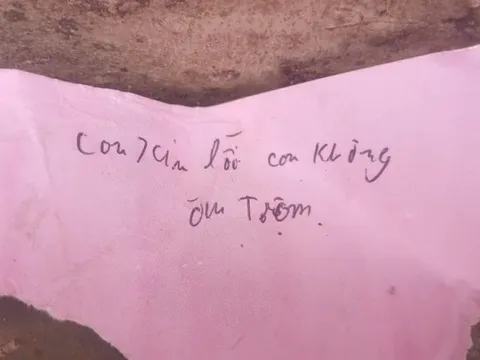 con xin lỗi con không
ăn Trộm